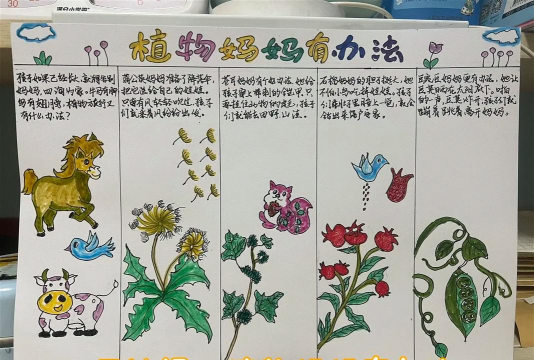 植物妈妈有办法
孩子如果已经长大,就得告别
妈妈,四海为家。牛马有脚,
鸟有翅膀,植物旅行又
有什么办法?
蒲公英妈妈准备了降落伞,
把它送给自己的娃娃。
只要有风轻轻吹过,孩子
们就乘着风纷纷出发。
苍耳妈妈有个好办法,她给
孩子穿上带刺的铠甲。只
要挂住动物的皮毛,孩子
们就能去田野、山洼。
石榴妈妈的胆子挺大,她
不怕小鸟吃掉娃娃。孩子
们在鸟肚子里睡上一觉,就会
钻出来落户安家。
豌豆妈妈更有办法,她让
豆荚晒在太阳底下。啪的
一声,豆荚炸开,孩子们就
蹦着跳着离开妈妈。